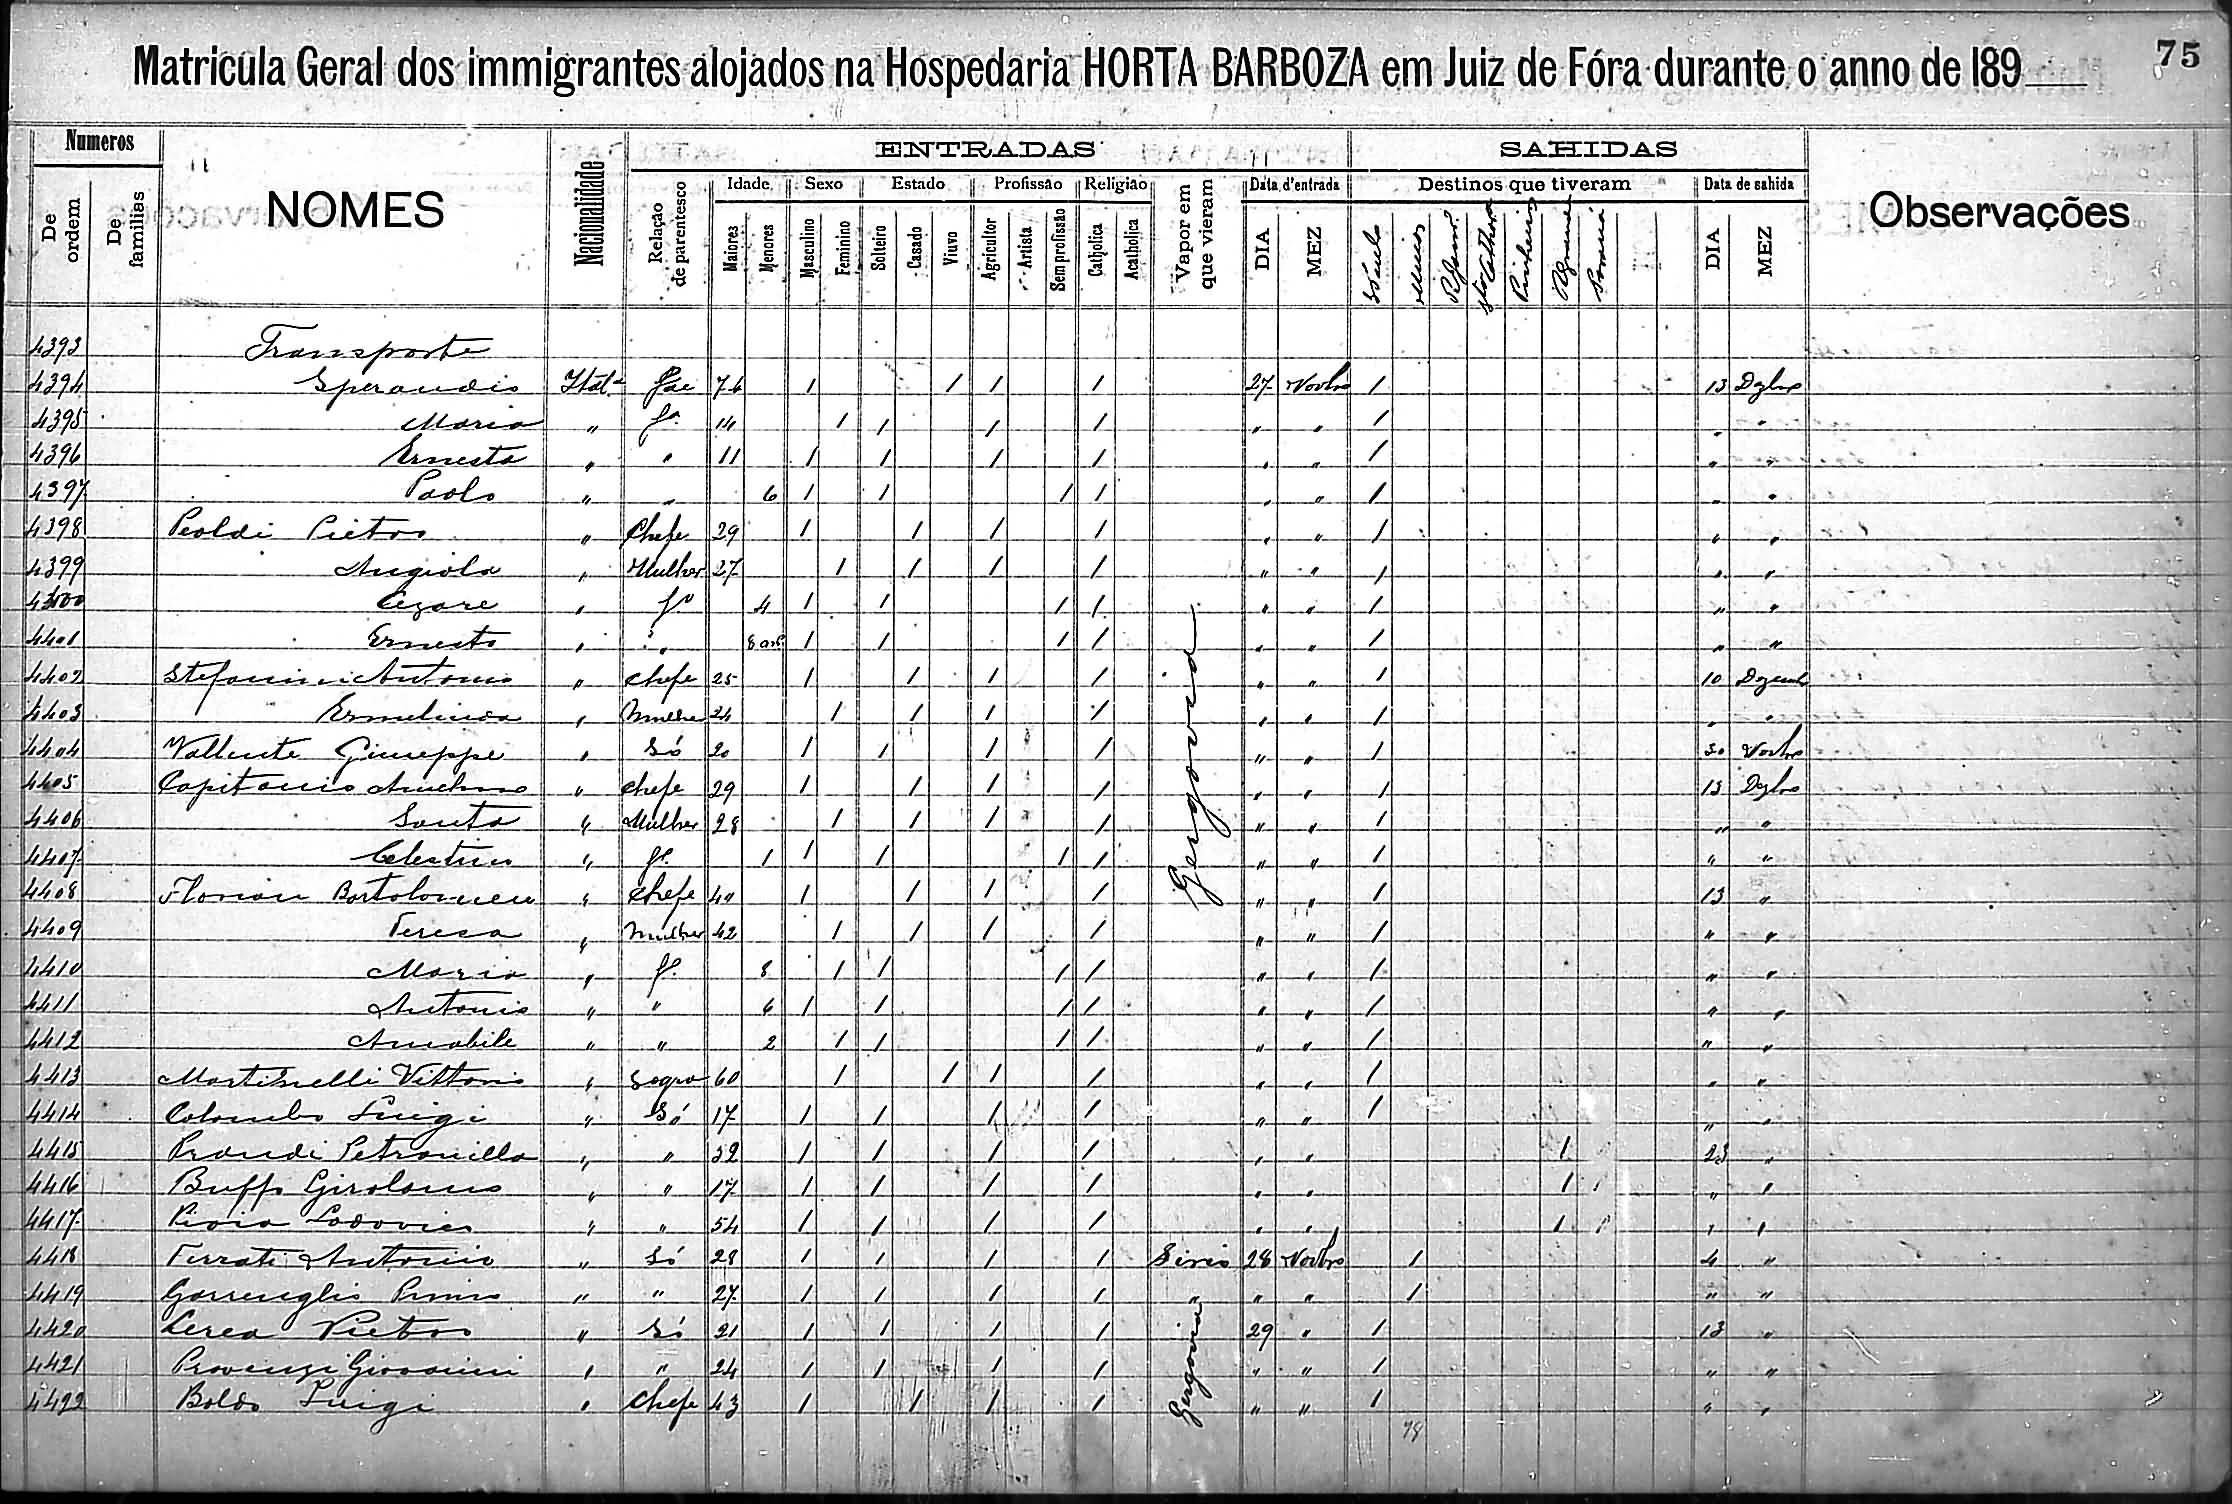 75
Matricula Geral dos immigrantes alojados na Hospedaria HORTA BARBOZA em Juiz de Fóra durante o anno de 189
Numeros ENTRADAS SAHIDAS
De ordem De familias NOMES Nacionalidade Relação de parentesco Idade Sexo Estado Profissão Religião Vapor em que vieram Data d'entrada Destinos que tiveram Data de sahida Observações
Maiores Menores Masculino Feminino Solteiro Casado Viuvo Agricultor Artista Sem profissão Catholica Acatholica DIA MEZ S Paulo DIA MEZ
4393 Transporte
4394 Sperandio Ital.ª Pae 76 1 1 1 1 27 Novbro 1 13 Dzbro
4395 Maria " fª 14 1 1 1 1 " " 1 " "
4396 Ernesto " " 11 1 1 1 1 " " 1 " "
4397 Paolo " " 6 1 1 1 1 " " 1 " "
4398 Peoldi Pietro " Chefe 29 1 1 1 1 " " 1 " "
4399 Angiola " Mulher 27 1 1 1 1 " " 1 " "
4400 Cezare " fº 4 1 1 1 1 " " 1 " "
4401 Ernesto " " 8 1 1 1 1 " " 1 " "
4402 Stefanini Antonio " Chefe 25 1 1 1 1 " " 1 10 Dezemb
4403 Ermelinda " Mulher 24 1 1 1 1 " " 1 " "
4404 Vallente Giuseppe " Só 20 1 1 1 1 " " 1 30 Novbro
4405 Capitanio Anselmo " Chefe 29 1 1 1 1 " " 1 13 Dzbro
4406 Santa " Mulher 28 1 1 1 1 " " 1 " "
4407 Celestino " fº 1 1 1 1 1 " " 1 " "
4408 Florian Bortolomeu " Chefe 40 1 1 1 1 Gergovia " " 1 13 "
4409 Teresa " Mulher 42 1 1 1 1 " " 1 " "
4410 Maria " fª 8 1 1 1 1 " " 1 " "
4411 Antonio " " 6 1 1 1 1 " " 1 " "
4412 Amabile " " 2 1 1 1 1 " " 1 " "
4413 Martinelli Vittoria " Sogra 60 1 1 1 1 " " 1 " "
4414 Colombo Luigi " Só 17 1 1 1 1 " " 1 " "
4415 Prandi Petronilla " " 32 1 1 1 1 " " 1 23 "
4416 Buffo Girolamo " " 17 1 1 1 1 " " 1 " "
4417 Lodovico " " 54 1 1 1 1 " " 1 " "
4418 Ferrati Antonio " Só 28 1 1 1 1 Sirio 28 Novbro 1 4 "
4419 Primo " " 27 1 1 1 1 " " " 1 " "
4420 Cerea Pietro " Só 21 1 1 1 1 29 " 1 13 "
4421 Provenzi Giovanni " " 24 1 1 1 1 " " 1 " "
4422 Boldo Luigi " Chefe 43 1 1 1 1 Gergovia " " 1 " "
78